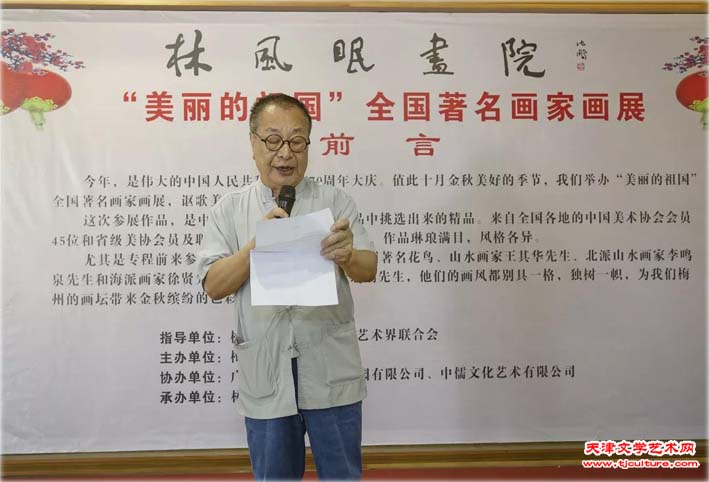 林風眠畫院
“美丽的祖国”全国著名画家画展
前言
今年，是伟大的中国人民共 70周年大庆。值此十月金秋美好的季节，我们举办“美丽的祖国”
全国著名画家画展，讴歌美
这次参展作品，是中 品中挑选出来的精品。来自全国各地的中国美术协会会员
45位和省级美协会员及 作品琳琅满目，风格各异。
尤其是专程前来参 著名花鸟、山水画家王其华先生、北派山水画家李鸣
泉先生和海派画家徐贤 先生，他们的画风都别具一格，独树一帜，为我们梅
州的画坛带来金秋缤纷的色彩
指导单位： 艺术界联合会
主办单位：
协办单位：广 有限公司、中儒文化艺术有限公司
承办单位：
天津文学艺术网
www.tjculture.com